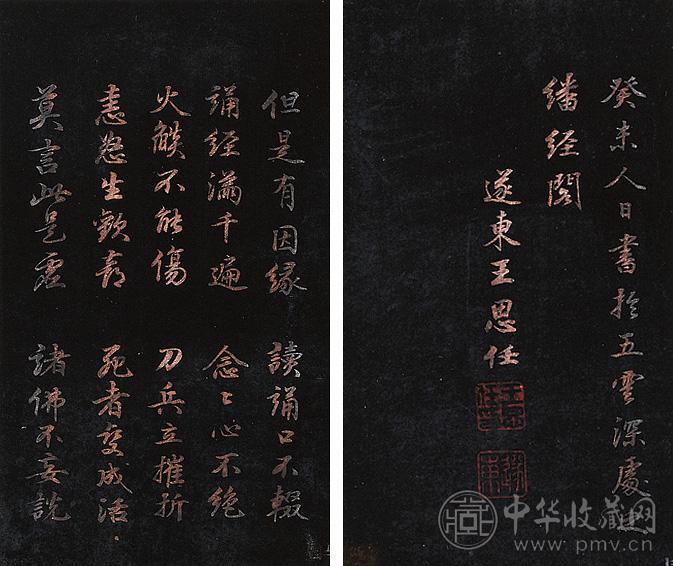 但是有因緣 讀誦口不輟
誦經滿千遍 念〻心不絕
火燄不能傷 刀兵立摧折
恚怒生歡喜 死者變成活
莫言此是虛 諸佛不妄說
癸未人日書於五雲深處
繙經閣
遂東王思任
遂東
中华收藏网
www.pmv.cn